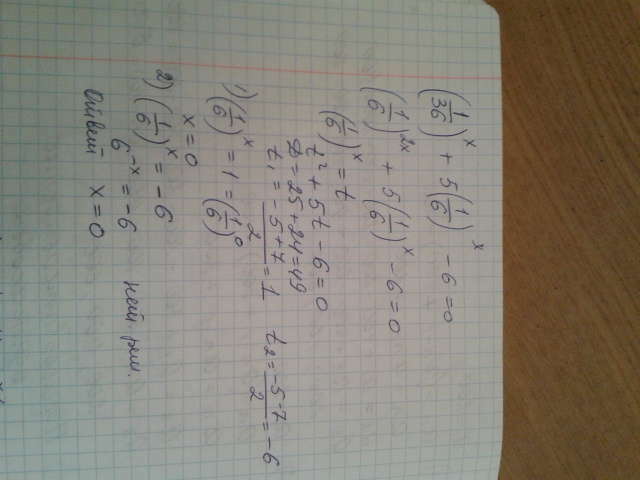 (1/36)^x + 5(1/6)^x - 6 = 0
(1/6)^2x + 5(1/6)^x - 6 = 0
(1/6)^x = t
t² + 5t - 6 = 0
D = 25 + 24 = 49
t₁ = (-5+7)/2 = 1 t₂ = (-5-7)/2 = -6
1) (1/6)^x = 1 = (1/6)^0
x = 0
2) (1/6)^x = -6
6^-x = -6 нет реш.
Ответ x = 0